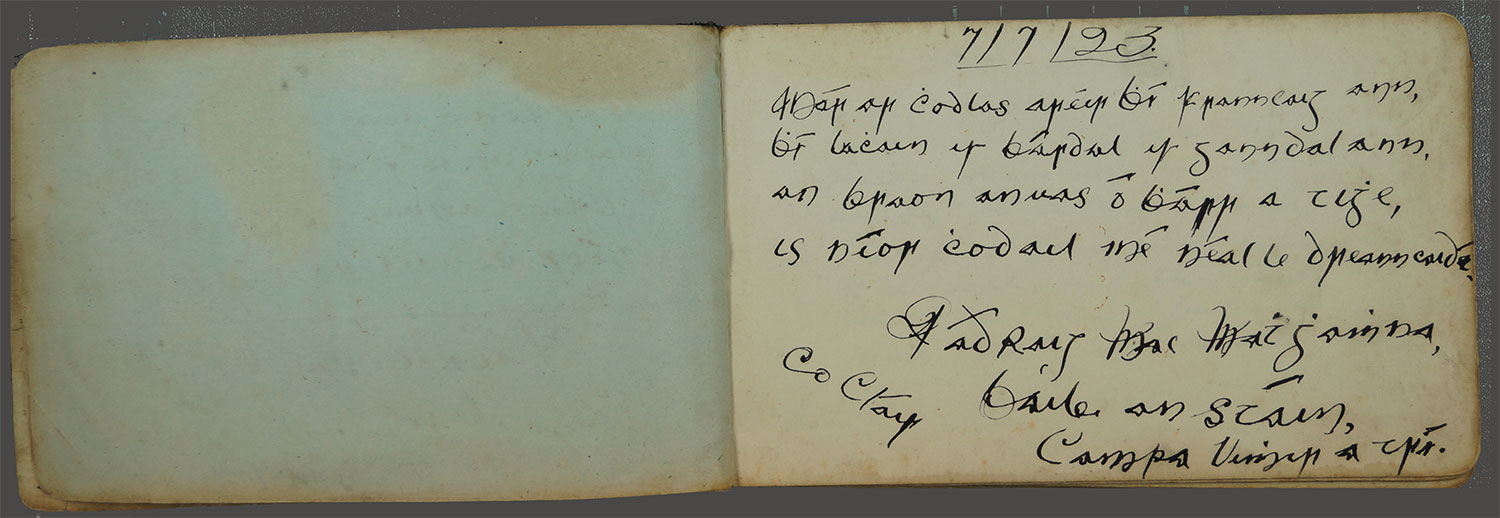 7/7/23.
Már ar ċodlas aréir bí franncaiġ ann,
bí laċain is bárdal is ganndal ann,
an braon anuas ó bárr a tiġe,
is níor ċodail mé néal le dreanncaidí.
Pádraig Mac Matġaṁna,
Co Cláir
Baile an Stáin,
Campa Uiṁir a trí.